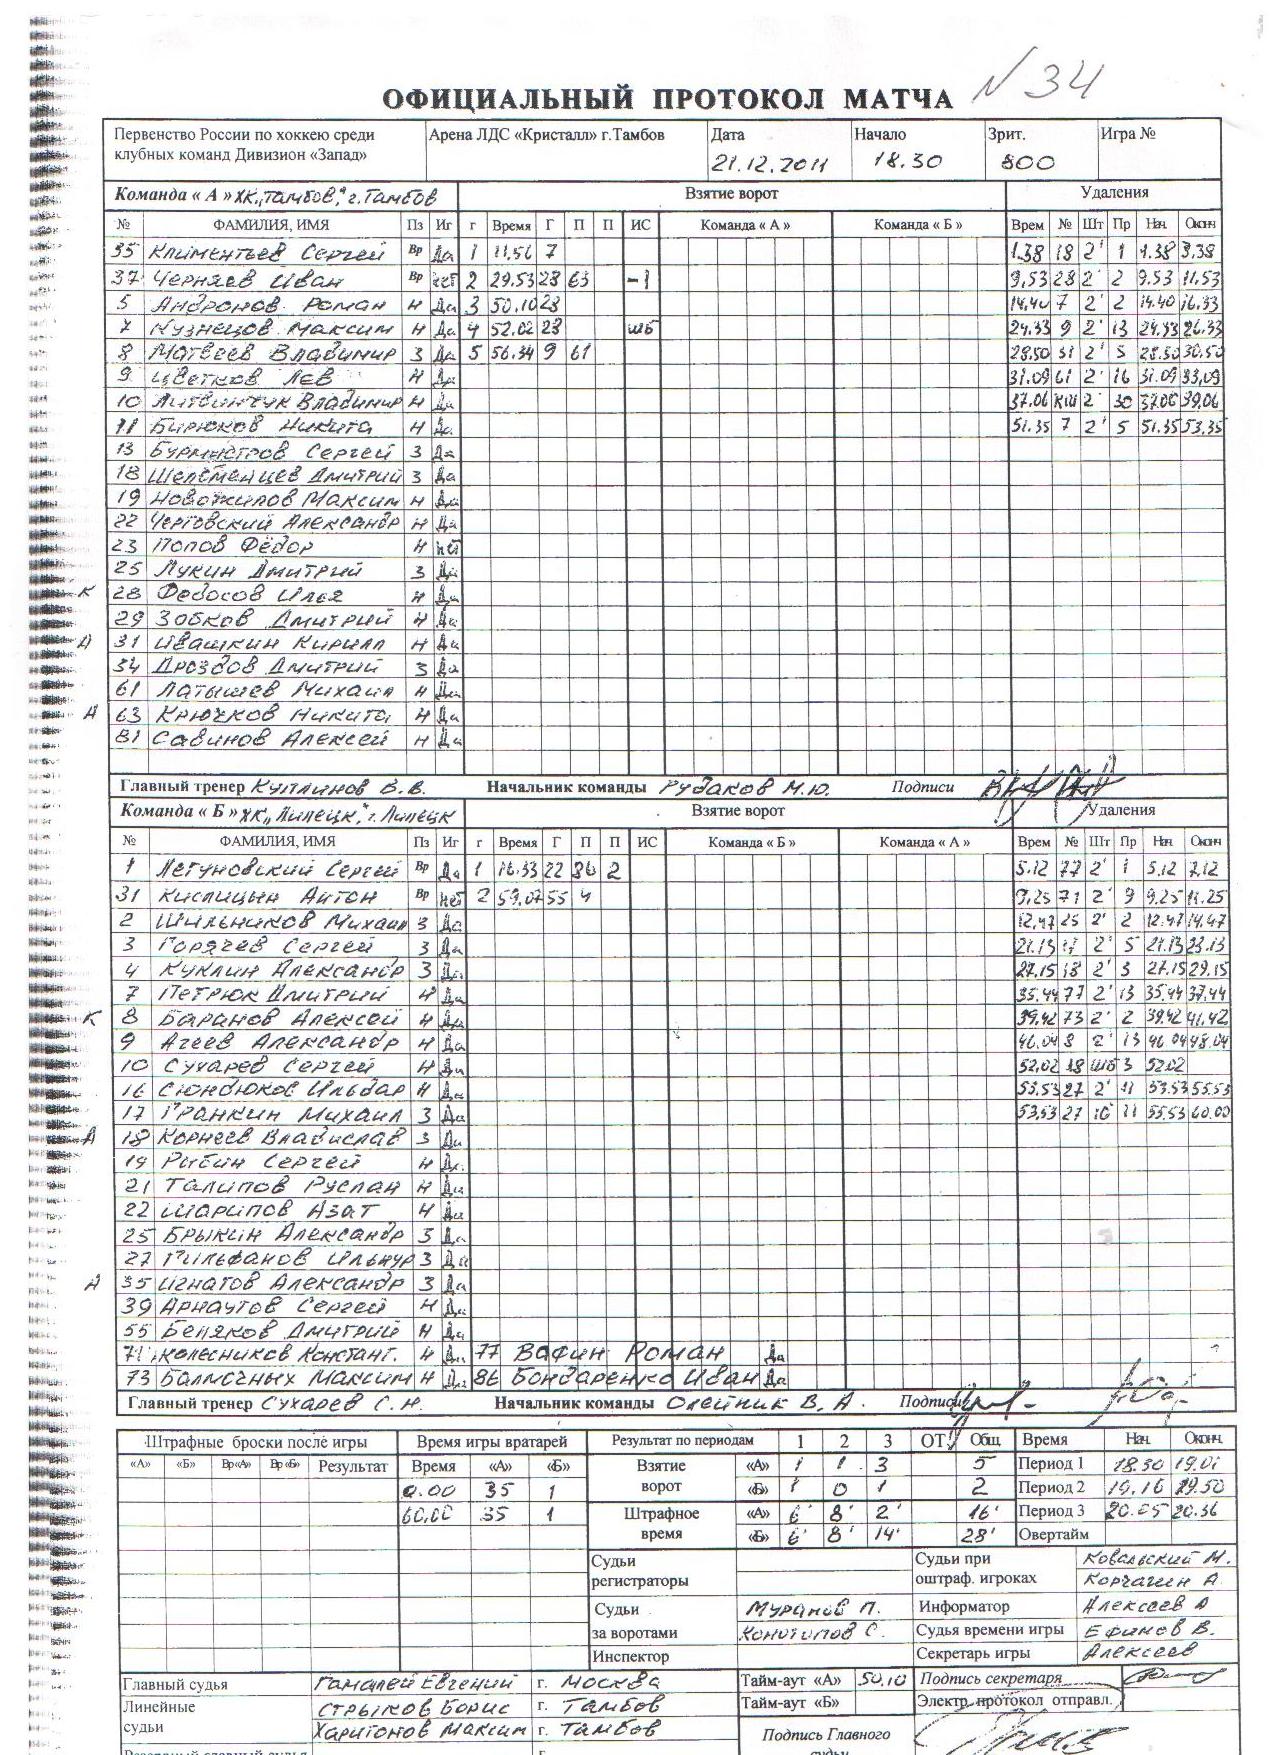 № 34
ОФИЦИАЛЬНЫЙ ПРОТОКОЛ МАТЧА
Первенство России по хоккею среди клубных команд Дивизион «Запад» Арена ЛДС «Кристалл» г.Тамбов Дата 21.12.2011 Начало 18.30 Зрит. 800 Игра №
Команда « А » ХК „Тамбов" г. Тамбов Взятие ворот Удаления
№ ФАМИЛИЯ, ИМЯ Пз Иг г Время Г П П ИС Команда « А » Команда « Б » Врем № Шт Пр Нач. Оконч
35 Климентьев Сергей Вр Да 1 11.56 7 1.38 18 2' 1 1.38 3.38
37 Черняев Иван Вр нет 2 29.53 28 63 -1 9.53 28 2' 2 9.53 11.53
5 Андронов Роман Н Да 3 50.10 28 14.40 7 2' 2 14.40 16.33
7 Кузнецов Максим Н Да 4 52.02 28 шб 24.33 9 2' 13 24.33 26.33
8 Матвеев Владимир З Да 5 56.34 9 61 28.50 31 2' 5 28.50 30.50
9 Цветков Лев Н Да 31.09 61 2' 16 31.09 33.09
10 Литвинчук Владимир Н Да 37.06 КШ 2' 30 37.06 39.06
11 Бирюков Никита Н Да 51.35 7 2' 5 51.35 53.35
13 Бурмистров Сергей З Да
18 Шелеменцев Дмитрий З Да
19 Новожилов Максим Н Да
22 Чертовский Александр Н Да
23 Попов Фёдор Н нет
25 Лукин Дмитрий З Да
К 28 Федосов Илья Н Да
29 Зобков Дмитрий Н Да
А 31 Ивашкин Кирилл Н Да
34 Дроздов Дмитрий З Да
61 Латышев Михаил Н Да
А 63 Крючков Никита Н Да
81 Савинов Алексей Н Да
Главный тренер Куплинов В.В. Начальник команды Рудаков М.Ю. Подписи
Команда « Б » ХК „Липецк" г. Липецк Взятие ворот Удаления
№ ФАМИЛИЯ, ИМЯ Пз Иг г Время Г П П ИС Команда « Б » Команда « А » Врем № Шт Пр Нач. Оконч
1 Легуновский Сергей Вр Да 1 16.33 22 86 2 5.12 77 2' 1 5.12 7.12
31 Кислицын Антон Вр нет 2 59.07 55 4 9.25 71 2' 9 9.25 11.25
2 Шильников Михаил З Да 12.47 25 2' 2 12.47 14.47
3 Горячев Сергей З Да 21.13 17 2' 5 21.13 23.13
4 Куклин Александр З Да 27.15 18 2' 3 27.15 29.15
7 Петрюк Дмитрий Н Да 35.44 77 2' 13 35.44 37.44
К 8 Баранов Алексей Н Да 39.42 73 2' 2 39.42 41.42
9 Агеев Александр Н Да 46.04 8 2' 13 46.04 48.04
10 Сухарев Сергей Н Да 52.02 18 шб 3 52.02
16 Сюндюков Ильдар Н Да 53.53 27 2' 11 53.53 55.53
17 Гранкин Михаил З Да 53.53 27 10 11 55.53 60.00
А 18 Корнеев Владислав З Да
19 Рябин Сергей Н Да
21 Талипов Руслан Н Да
22 Шарипов Азат Н Да
25 Брыкин Александр З Да
27 Гильфанов Ильнур З Да
А 35 Игнатов Александр З Да
39 Арнаутов Сергей Н Да
55 Беляков Дмитрий Н Да
71 Колесников Констант. Н Да 77 Вафин Роман Да
73 Балмочных Максим Н Да 86 Бондаренко Иван Да
Главный тренер Сухарев С.Н. Начальник команды Олейник В.А. Подписи
Штрафные броски после игры Время игры вратарей Результат по периодам 1 2 3 ОТ Общ. Время Нач. Оконч.
«А» «Б» Вр«А» Вр«Б» Результат Время «А» «Б» Взятие ворот «А» 1 1 3 5 Период 1 18.30 19.01
0.00 35 1 «Б» 1 0 1 2 Период 2 19.16 19.50
60.00 35 1 Штрафное время «А» 6' 8' 2' 16' Период 3 20.05 20.36
«Б» 6' 8' 14' 28' Овертайм
Судьи регистраторы Судьи при оштраф. игроках Ковальский М.
Корчагин А
Судьи за воротами Муранов П. Информатор Алексеев А
Конотопов С. Судья времени игры Ефимов В.
Инспектор Секретарь игры Алексеев
Главный судья Гамалей Евгений г. Москва Тайм-аут «А» 50.10 Подпись секретаря
Линейные судьи Стрыков Борис г. Тамбов Тайм-аут «Б» Электр. протокол отправл.
Харитонов Максим г. Тамбов Подпись Главного судьи
Резервный главный судья г.